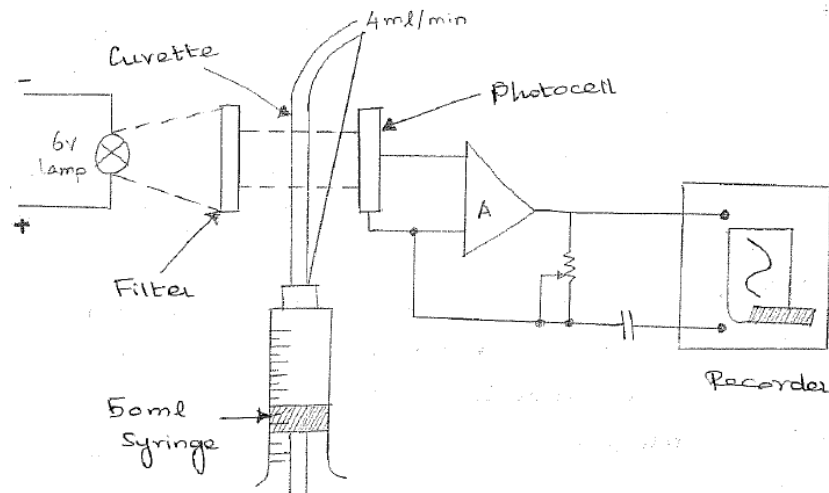 4ml/min
Cuvette
Photocell
-
6v
lamp
+
A
Filter
Recorder
50ml
Syringe